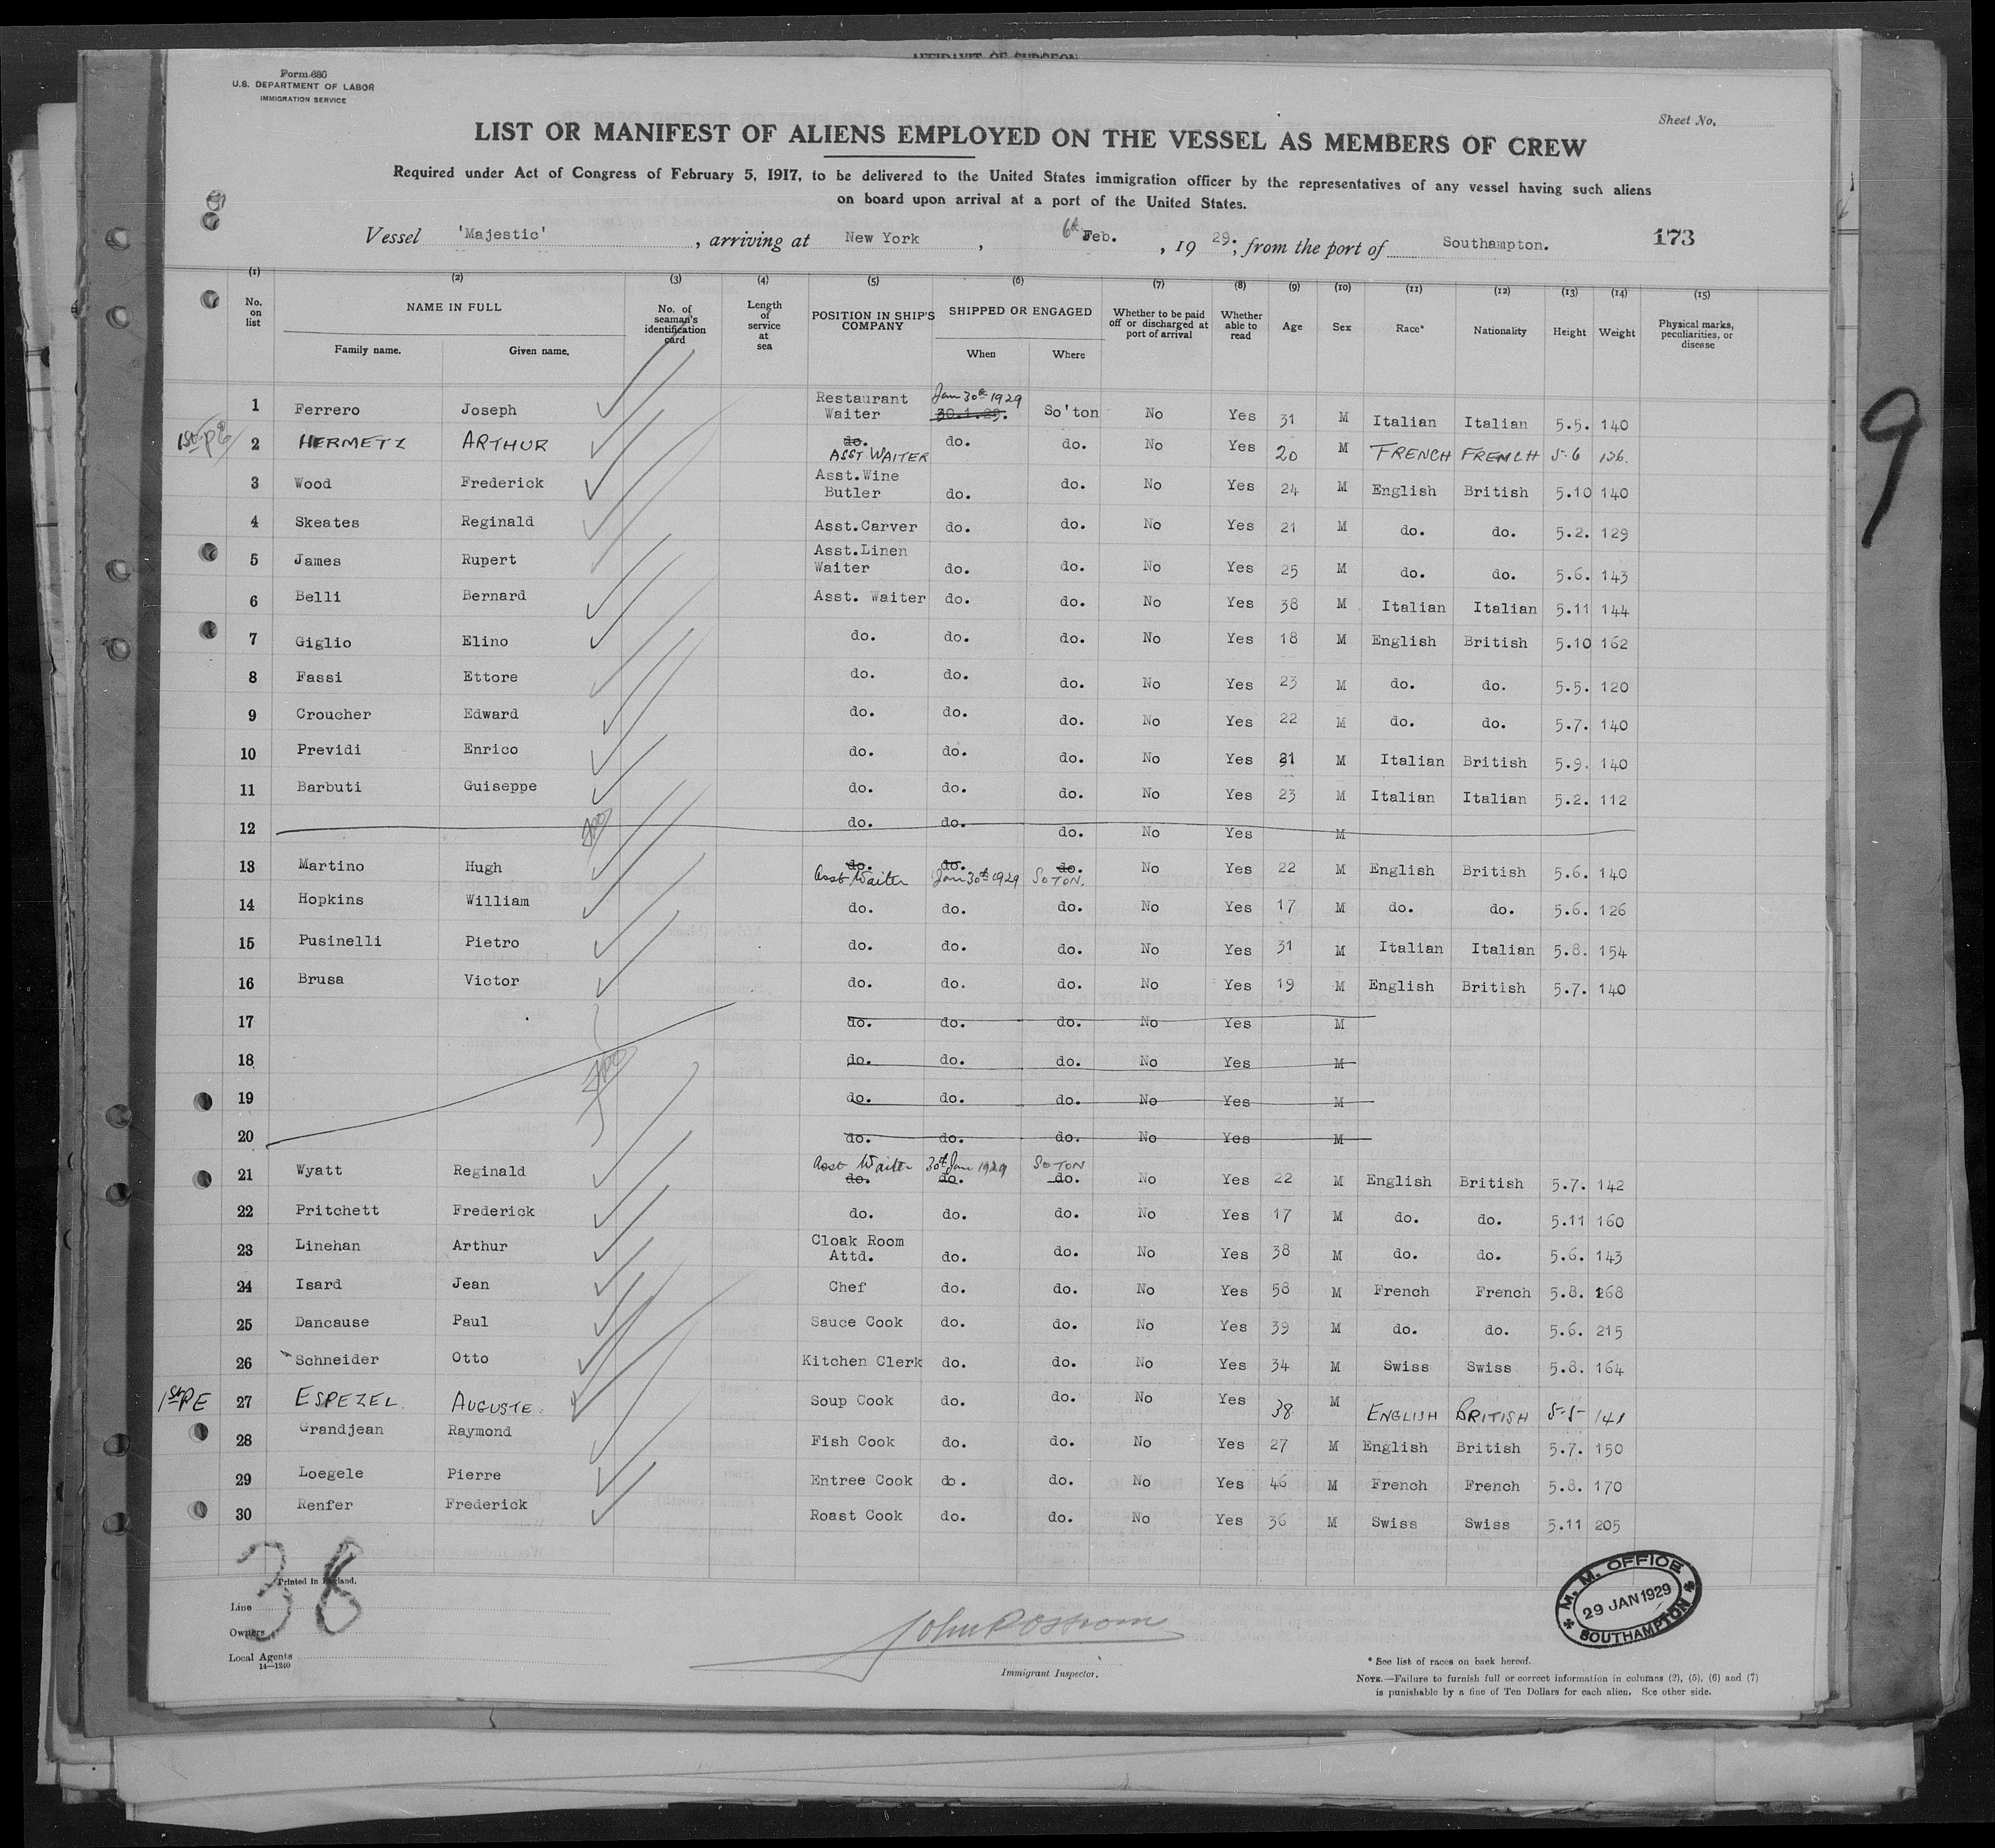 AFFIDAVIT OF SURGEON
Form 680
U.S. DEPARTMENT OF LABOR
IMMIGRATION SERVICE
Sheet No.
LIST OR MANIFEST OF ALIENS EMPLOYED ON THE VESSEL AS MEMBERS OF CREW
Required under Act of Congress of February 5, 1917, to be delivered to the United States immigration officer by the representatives of any vessel having such aliens
on board upon arrival at a port of the United States.
Vessel 'Majestic' , arriving at New York , 6th Feb. , 19 29. ; from the port of Southampton. 173
(1) (2) (3) (4) (5) (6) (7) (8) (9) (10) (11) (12) (13) (14) (15)
No. on list NAME IN FULL Family name. Given name. No. of seaman's identification card Length of service at sea POSITION IN SHIP'S COMPANY SHIPPED OR ENGAGED When Where Whether to be paid off or discharged at port of arrival Whether able to read Age Sex Race* Nationality Height Weight Physical marks, peculiarities, or disease
1 Ferrero Joseph Restaurant Waiter Jan 30th 1929 30.1.29. So'ton No Yes 31 M Italian Italian 5.5. 140
1st PE 2 HERMETZ ARTHUR do. ASST WAITER do. do. No Yes 20 M FRENCH FRENCH 5-6 136.
3 Wood Frederick Asst.Wine Butler do. do. No Yes 24 M English British 5.10 140
4 Skeates Reginald Asst.Carver do. do. No Yes 21 M do. do. 5.2. 129
5 James Rupert Asst.Linen Waiter do. do. No Yes 25 M do. do. 5.6. 143
6 Belli Bernard Asst. Waiter do. do. No Yes 38 M Italian Italian 5.11 144
7 Giglio Elino do. do. do. No Yes 18 M English British 5.10 162
8 Fassi Ettore do. do. do. No Yes 23 M do. do. 5.5. 120
9 Croucher Edward do. do. do. No Yes 22 M do. do. 5.7. 140
10 Previdi Enrico do. do. do. No Yes 21 M Italian British 5.9. 140
11 Barbuti Guiseppe do. do. do. No Yes 23 M Italian Italian 5.2. 112
12 do. do. do. No Yes M
13 Martino Hugh do. Asst Waiter do. Jan 30th 1929 do. SOTON. No Yes 22 M English British 5.6. 140
14 Hopkins William do. do. do. No Yes 17 M do. do. 5.6. 126
15 Pusinelli Pietro do. do. do. No Yes 31 M Italian Italian 5.8. 154
16 Brusa Victor do. do. do. No Yes 19 M English British 5.7. 140
17 do. do. do. No Yes M
18 do. do. do. No Yes M
19 do. do. do. No Yes M
20 do. do. do. No Yes M
21 Wyatt Reginald Asst Waiter do. 30th Jan 1929 do. SOTON do. No Yes 22 M English British 5.7. 142
22 Pritchett Frederick do. do. do. No Yes 17 M do. do. 5.11 160
23 Linehan Arthur Cloak Room Attd. do. do. No Yes 38 M do. do. 5.6. 143
24 Isard Jean Chef do. do. No Yes 58 M French French 5.8. 168
25 Dancause Paul Sauce Cook do. do. No Yes 39 M do. do. 5.6. 215
26 Schneider Otto Kitchen Clerk do. do. No Yes 34 M Swiss Swiss 5.8. 164
1st PE 27 ESPEZEL AUGUSTE. Soup Cook do. do. No Yes 38 M ENGLISH BRITISH 5-5- 141
28 Grandjean Raymond Fish Cook do. do. No Yes 27 M English British 5.7. 150
29 Loegele Pierre Entree Cook do. do. No Yes 46 M French French 5.8. 170
30 Renfer Frederick Roast Cook do. do. No Yes 36 M Swiss Swiss 5.11 205
9
38
Printed in England.
Line
Owners
Local Agents
14—1240
Immigrant Inspector.
M. M. OFFICE
29 JAN 1929
SOUTHAMPTON
* See list of races on back hereof.
NOTE.—Failure to furnish full or correct information in columns (2), (5), (6) and (7)
is punishable by a fine of Ten Dollars for each alien. See other side.